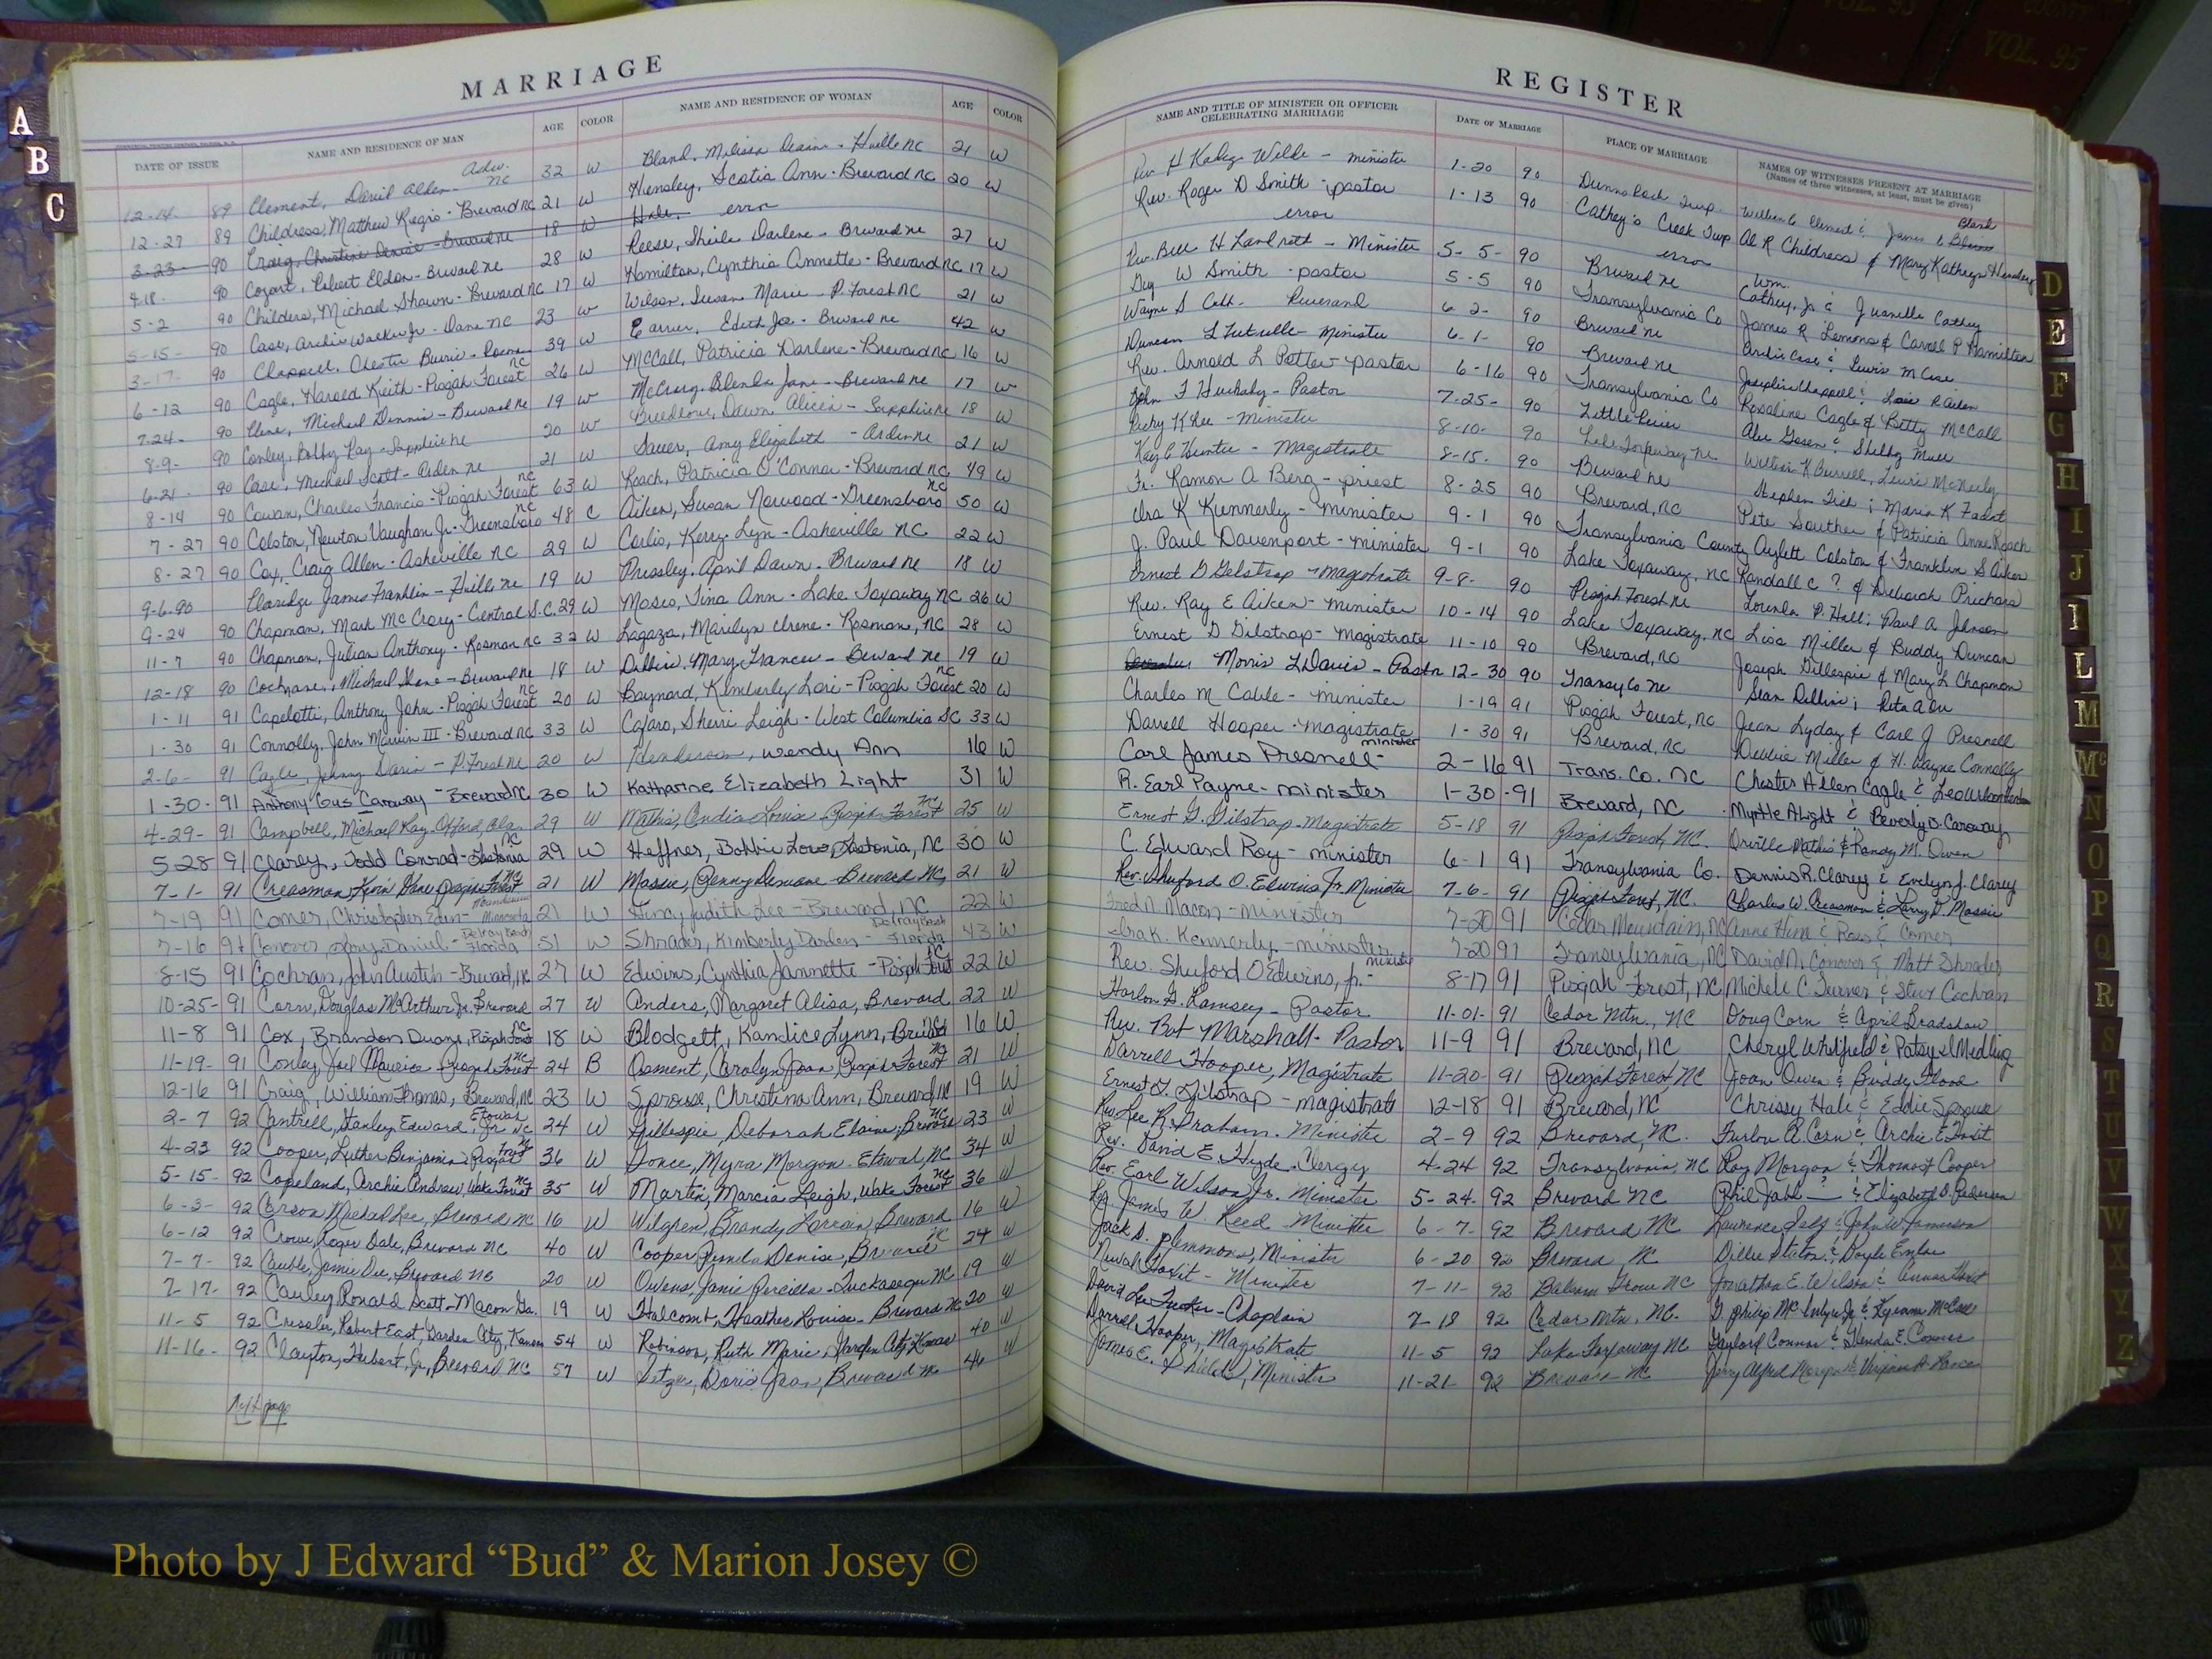 MARRIAGE
DATE OF ISSUE NAME AND RESIDENCE OF MAN AGE COLOR NAME AND RESIDENCE OF WOMAN AGE COLOR
12-14- 89 Clement, David Alden- NC 32 W Bland, Melissa - NC 21 W
12-27 89 Childress, Matthew Regis - Brevard NC 21 W Hensley, Scotia Ann - Brevard NC 20 W
3-23 90 Craig, Christine Denise - Brevard NC 18 W Hale, error
4-18- 90 Cozart, Robert Eldon - Brevard NC 28 W Reese, Sheila Darlene - Brevard NC 27 W
5-2 90 Childers, Michael Shawn - Brevard NC 17 W Hamilton, Cynthia Annette - Brevard NC 17 W
5-15- 90 Case, Archie Walker Jr - Dana NC 23 W Wilson, Susan Marie - P. Forest NC 21 W
3-17- 90 Chappell, Chester - 39 W Edith Joe - Brevard NC 42 W
6-12 90 Cagle, Harold Keith - Pisgah Forest NC 26 W McCall, Patricia Darlene - Brevard NC 16 W
7-24- 90 Cline, Michael Dennis - Brevard NC 19 W McCrary, Glenda Jane - Brevard NC 17 W
8-9- 90 Conley, Bobby Ray - Sapphire NC 20 W Breedlove, Dawn Alicia - Sapphire NC 18 W
6-21- 90 Case, Michael Scott - Arden NC 21 W Sauer, Amy Elizabeth - Arden NC 21 W
8-14 90 Cowan, Charles Francis - Pisgah Forest NC 63 W Roach, Patricia O'Connor - Brevard NC 49 W
7-27 90 Colston, Newton Vaughan Jr. - Greensboro NC 48 C Aiken, Susan Norwood - Greensboro NC 50 W
8-27 90 Cox, Craig Allen - Asheville NC 29 W Carlis, Kerry Lyn - Asheville NC 22 W
9-6-90 James Franklin - NC 19 W Pressley, April Dawn - Brevard NC 18 W
9-24 90 Chapman, Mark McCrary - Central S.C. 29 W Moses, Tina Ann - Lake Toxaway NC 26 W
11-7 90 Chapman, Julian Anthony - Rosman NC 32 W Lagaza, Marilyn Irene - Rosman, NC 28 W
12-18 90 Cochrane, Michael Shane - Brevard NC 18 W Dellini, Mary Frances - Brevard NC 19 W
1-11 91 Capelotti, Anthony John - Pisgah Forest NC 20 W Baynard, Kimberly Lori - Pisgah Forest NC 20 W
1-30 91 Connolly, John Marvin III - Brevard NC 33 W Cajaro, Sherri Leigh - West Columbia SC 33 W
2-6- 91 Cagle, Johnny Darin - P. Forest NC 20 W Henderson, Wendy Ann 16 W
1-30-91 Anthony Gus Caroway - Brevard NC 30 W Katharine Elizabeth Light 31 W
4-29- 91 Campbell, Michael Ray - 29 W Mathis, Candia Louise Pisgah Forest NC 25 W
5-28 91 Clarey, Todd Conrad - Gastonia NC 29 W Heffner, Bobbie Love, Gastonia, NC 30 W
7-1- 91 Creasman, Kevin Pisgah Forest NC 21 W Massie, Penny - Brevard NC, 21 W
7-19 91 Comer, Christopher Eden - Minnesota 21 W Judith Lee - Brevard, NC 22 W
7-16 91 Conover, Gary Daniel - Delray Beach Florida 51 W Shrader, Kimberly Darden - Delray Beach Florida 43 W
8-15 91 Cochran, John Austin - Brevard, NC 27 W Edwins, Cynthia Jannette - Pisgah Forest NC 22 W
10-25-91 Corn, Douglas McArthur Jr. Brevard 27 W Anders, Margaret Alisa, Brevard 22 W
11-8 91 Cox, Brandon Duane, Pisgah Forest NC 18 W Blodgett, Kandice Lynn, Brevard NC 16 W
11-19- 91 Conley, Joel Maurice - Pisgah Forest NC 24 B Osment, Carolyn Joan, Pisgah Forest NC 21 W
12-16 91 Craig, William Thomas, Brevard, NC 23 W Sprouse, Christina Ann, Brevard, NC 19 W
2-7 92 Cantrell, Stanley Edward, Jr. Etowah NC 24 W Gillespie, Deborah Elaine, Brevard NC 23 W
4-23 92 Cooper, Luther Benjamin Pisgah Forest NC 36 W Myra Morgan - Etowah, NC 34 W
5-15- 92 Copeland, Archie Andrew, Wake Forest NC 35 W Martin, Marcia Leigh, Wake Forest NC 36 W
6-3- 92 Carson Michael Lee, Brevard NC 16 W Wilgren, Brandy Lorrain, Brevard 16 W
6-12 92 Crowe, Roger Dale, Brevard NC 40 W Cooper, Denise, Brevard NC 24 W
7-7- 92 Cauble, Jamie Dee, Brevard NC 20 W Owens, Janie Percilla - Tuckasegee NC 19 W
7-17- 92 Cauley, Ronald Scott - Macon Ga. 19 W Halcomb, Heather Louise - Brevard NC 20 W
11-5 92 Cressler, Robert East, Garden City, Kansas 54 W Robinson, Ruth Marie, Garden City, Kansas 40 W
11-16- 92 Clayton, Hubert, Jr., Brevard NC 57 W Setzer, Doris Jean, Brevard NC 46 W
Next page
REGISTER
NAME AND TITLE OF MINISTER OR OFFICER CELEBRATING MARRIAGE DATE OF MARRIAGE PLACE OF MARRIAGE NAMES OF WITNESSES PRESENT AT MARRIAGE
(Names of three witnesses, at least, must be given)
Rev. H Welde - minister 1-20 90 Dunns Rock Twp. William C Clement & James Bland
Rev. Roger D Smith - pastor 1-13 90 Cathey's Creek Twp Al R Childress & Mary Kathryn Hensley
error error
Rev. Bill H Landreth - Minister 5-5- 90 Brevard NC Wm. Cathey, Jr & Juanelle Cathey
W Smith - pastor 5-5 90 Transylvania Co James R Lemons & Carroll P Hamilton
Wayne S - Reverend 6-2- 90 Brevard NC Archie Case & Lewis M Case
Duncan L - minister 6-1- 90 Brevard NC Josephine Chappell &
Rev. Arnold L Potter - pastor 6-16 90 Transylvania Co Rosaline Cagle & Betty McCall
John F Huckaby - Pastor 7-25- 90 Little River & Shelby
Ricky K Lee - Minister 8-10- 90 Lake Toxaway NC William K Burrell, Lewis McNeely
Kay C Hunter - Magistrate 8-15- 90 Brevard NC Stephen & Maria K
Fr. Ramon A Berg - priest 8-25 90 Brevard, NC Pete Souther & Patricia Anne Roach
Ira K Kennerly - minister 9-1 90 Transylvania County Aylett Colston & Franklin S Aiken
J. Paul Davenport - minister 9-1 90 Lake Toxaway, NC Randall C ? & Deborah Prichard
Ernest G Gilstrap - magistrate 9-8- 90 Pisgah Forest NC Lounda P Hall; Paul A Johnson
Rev. Ray E Aiken - minister 10-14 90 Lake Toxaway, NC Lisa Miller & Buddy Duncan
Ernest G Gilstrap - Magistrate 11-10 90 Brevard, NC Joseph Gillespie & Mary L Chapman
Morris L Davis - Pastor 12-30 90 Transy Co NC Sean Dellini;
Charles M Cable - minister 1-19 91 Pisgah Forest, NC Jean Lyday & Carl J Presnell
Darrell Hooper - magistrate 1-30 91 Brevard, NC Debbie Miller & H. Wayne Connolly
Carl James Presnell - minister 2-16 91 Trans. Co. NC Chester Allen Cagle &
R. Earl Payne - minister 1-30-91 Brevard, NC Myrtle A Light & Beverly D. Caroway
Ernest G. Gilstrap - Magistrate 5-18 91 Pisgah Forest, NC. Orville Mathis & Randy M. Owen
C. Edward Roy - minister 6-1 91 Transylvania Co. Dennis R. Clarey & Evelyn J. Clarey
Rev. Shuford O. Edwins Jr. Minister 7-6- 91 Pisgah Forest, NC. Charles W. Creasman & Larry D. Massie
Fred N. Macon - minister 7-20 91 Cedar Mountain, NC Anne & Ross E Comer
Ira K. Kennerly - minister 7-20 91 Transylvania, NC David N. Conover & Matt Shrader
Rev. Shuford O Edwins, Jr. - minister 8-17 91 Pisgah Forest, NC Michele C Turner & Steve Cochran
Harlon G. Ramsey - Pastor 11-01-91 Cedar Mtn., NC Doug Corn & April Bradshaw
Rev. Bot Marshall - Pastor 11-9 91 Brevard, NC Cheryl Whitfield & Patsy S Medling
Darrell Hooper, Magistrate 11-20-91 Pisgah Forest NC Joan Owen & Buddy Flood
Ernest G. Gilstrap - magistrate 12-18 91 Brevard, NC Chrissy Hale & Eddie Sprouse
Rev. Lee R. Graham - Minister 2-9 92 Brevard, NC. Furlon A. Cain & Archie E.
Rev. David E. Hyde - Clergy 4-24 92 Transylvania, NC Roy Morgan & Thomas Cooper
Rev. Earl Wilson, Jr. Minister 5-24-92 Brevard NC Phil & Elizabeth D. Pederson
James W. Reed - Minister 6-7-92 Brevard NC Laurence & John W Jamerson
Jack D. Plemmons, Minister 6-20 92 Brevard NC & Doyle
- Minister 7-11- 92 Balsam Grove NC Jonathan E. Wilson &
David Lee Tucker - Chaplain 7-18 92 Cedar Mtn. NC. G. Philip
Darrell Hooper, Magistrate 11-5 92 Lake Toxaway NC Gaylord Conner & Glenda E. Conner
James E. Minister 11-21 92 Brevard NC Jerry Alfred
A
B
C
D
E
F
G
H
I
J
L
M
Mc
N
O
P
Q
R
S
T
U
V
W
X
Y
Z
VOL. 95
Photo by J Edward “Bud” & Marion Josey ©